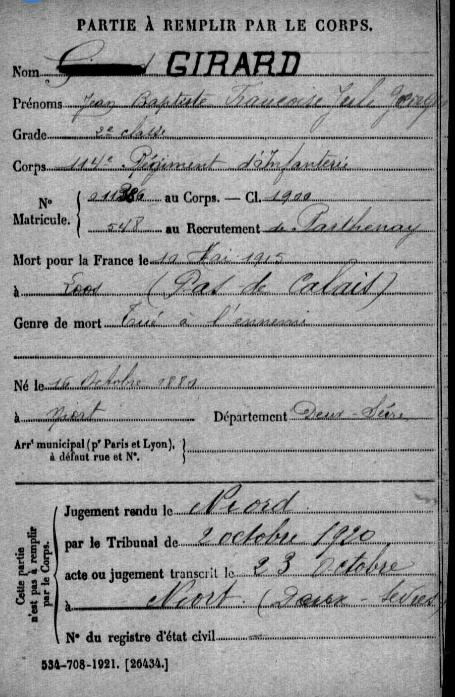 PARTIE À REMPLIR PAR LE CORPS.
Nom GIRARD
Prénoms Jean Baptiste Francoise Jule
Grade 2e classe
Corps 114e Régiment d'Infanterie
N° Matricule. au Corps. — Cl. 1900
548 au Recrutement de Parthenay
Mort pour la France le Mai 1915
à Loos (Pas de Calais)
Genre de mort Tué à l'ennemi
Né le 16 Octobre
à Niort Département Deux-Sèvre
Arrt municipal (pr Paris et Lyon), à défaut rue et N°.
Cette partie n'est pas à remplir par le Corps.
Jugement rendu le Niord
par le Tribunal de 2 octobre 1920
acte ou jugement transcrit le 23 Octobre
à Niort. (Deux-Sèvres)
N° du registre d'état civil —
534-708-1921. [26434.]